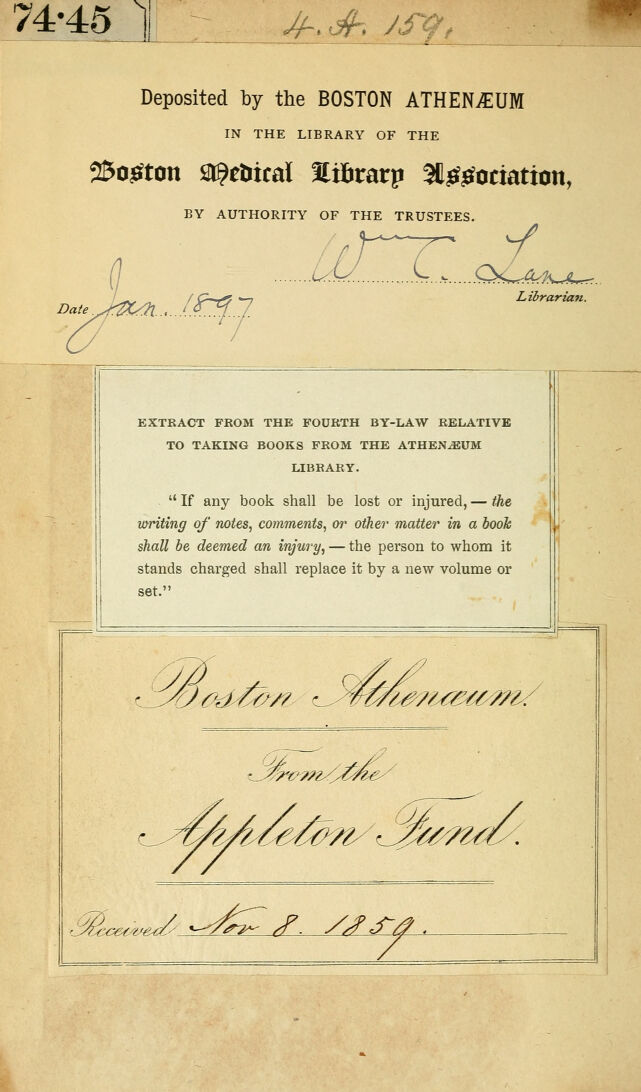 74·45
4. A. 159.
Deposited by the BOSTON ATHENÆUM
IN THE LIBRARY OF THE
Boston Medical Library Association,
BY AUTHORITY OF THE TRUSTEES.
Wm C. Lane
Librarian.
Date Jan. 1897
EXTRACT FROM THE FOURTH BY-LAW RELATIVE
TO TAKING BOOKS FROM THE ATHENÆUM
LIBRARY.
“If any book shall be lost or injured,—the
writing of notes, comments, or other matter in a book
shall be deemed an injury,—the person to whom it
stands charged shall replace it by a new volume or
set.”
Boston Athenæum.
From the
Appleton Fund.
Received Nov 8. 1859.